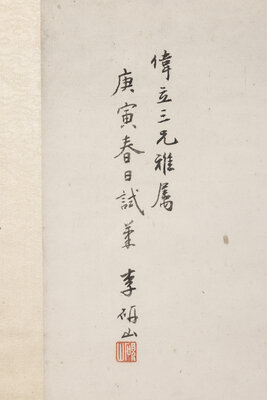 偉立三兄雅屬
庚寅春日試筆 李研山
研山